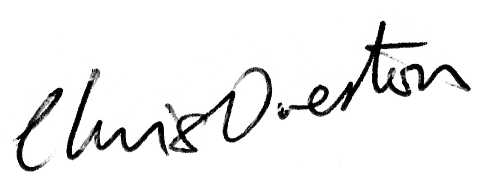 Chris Overton